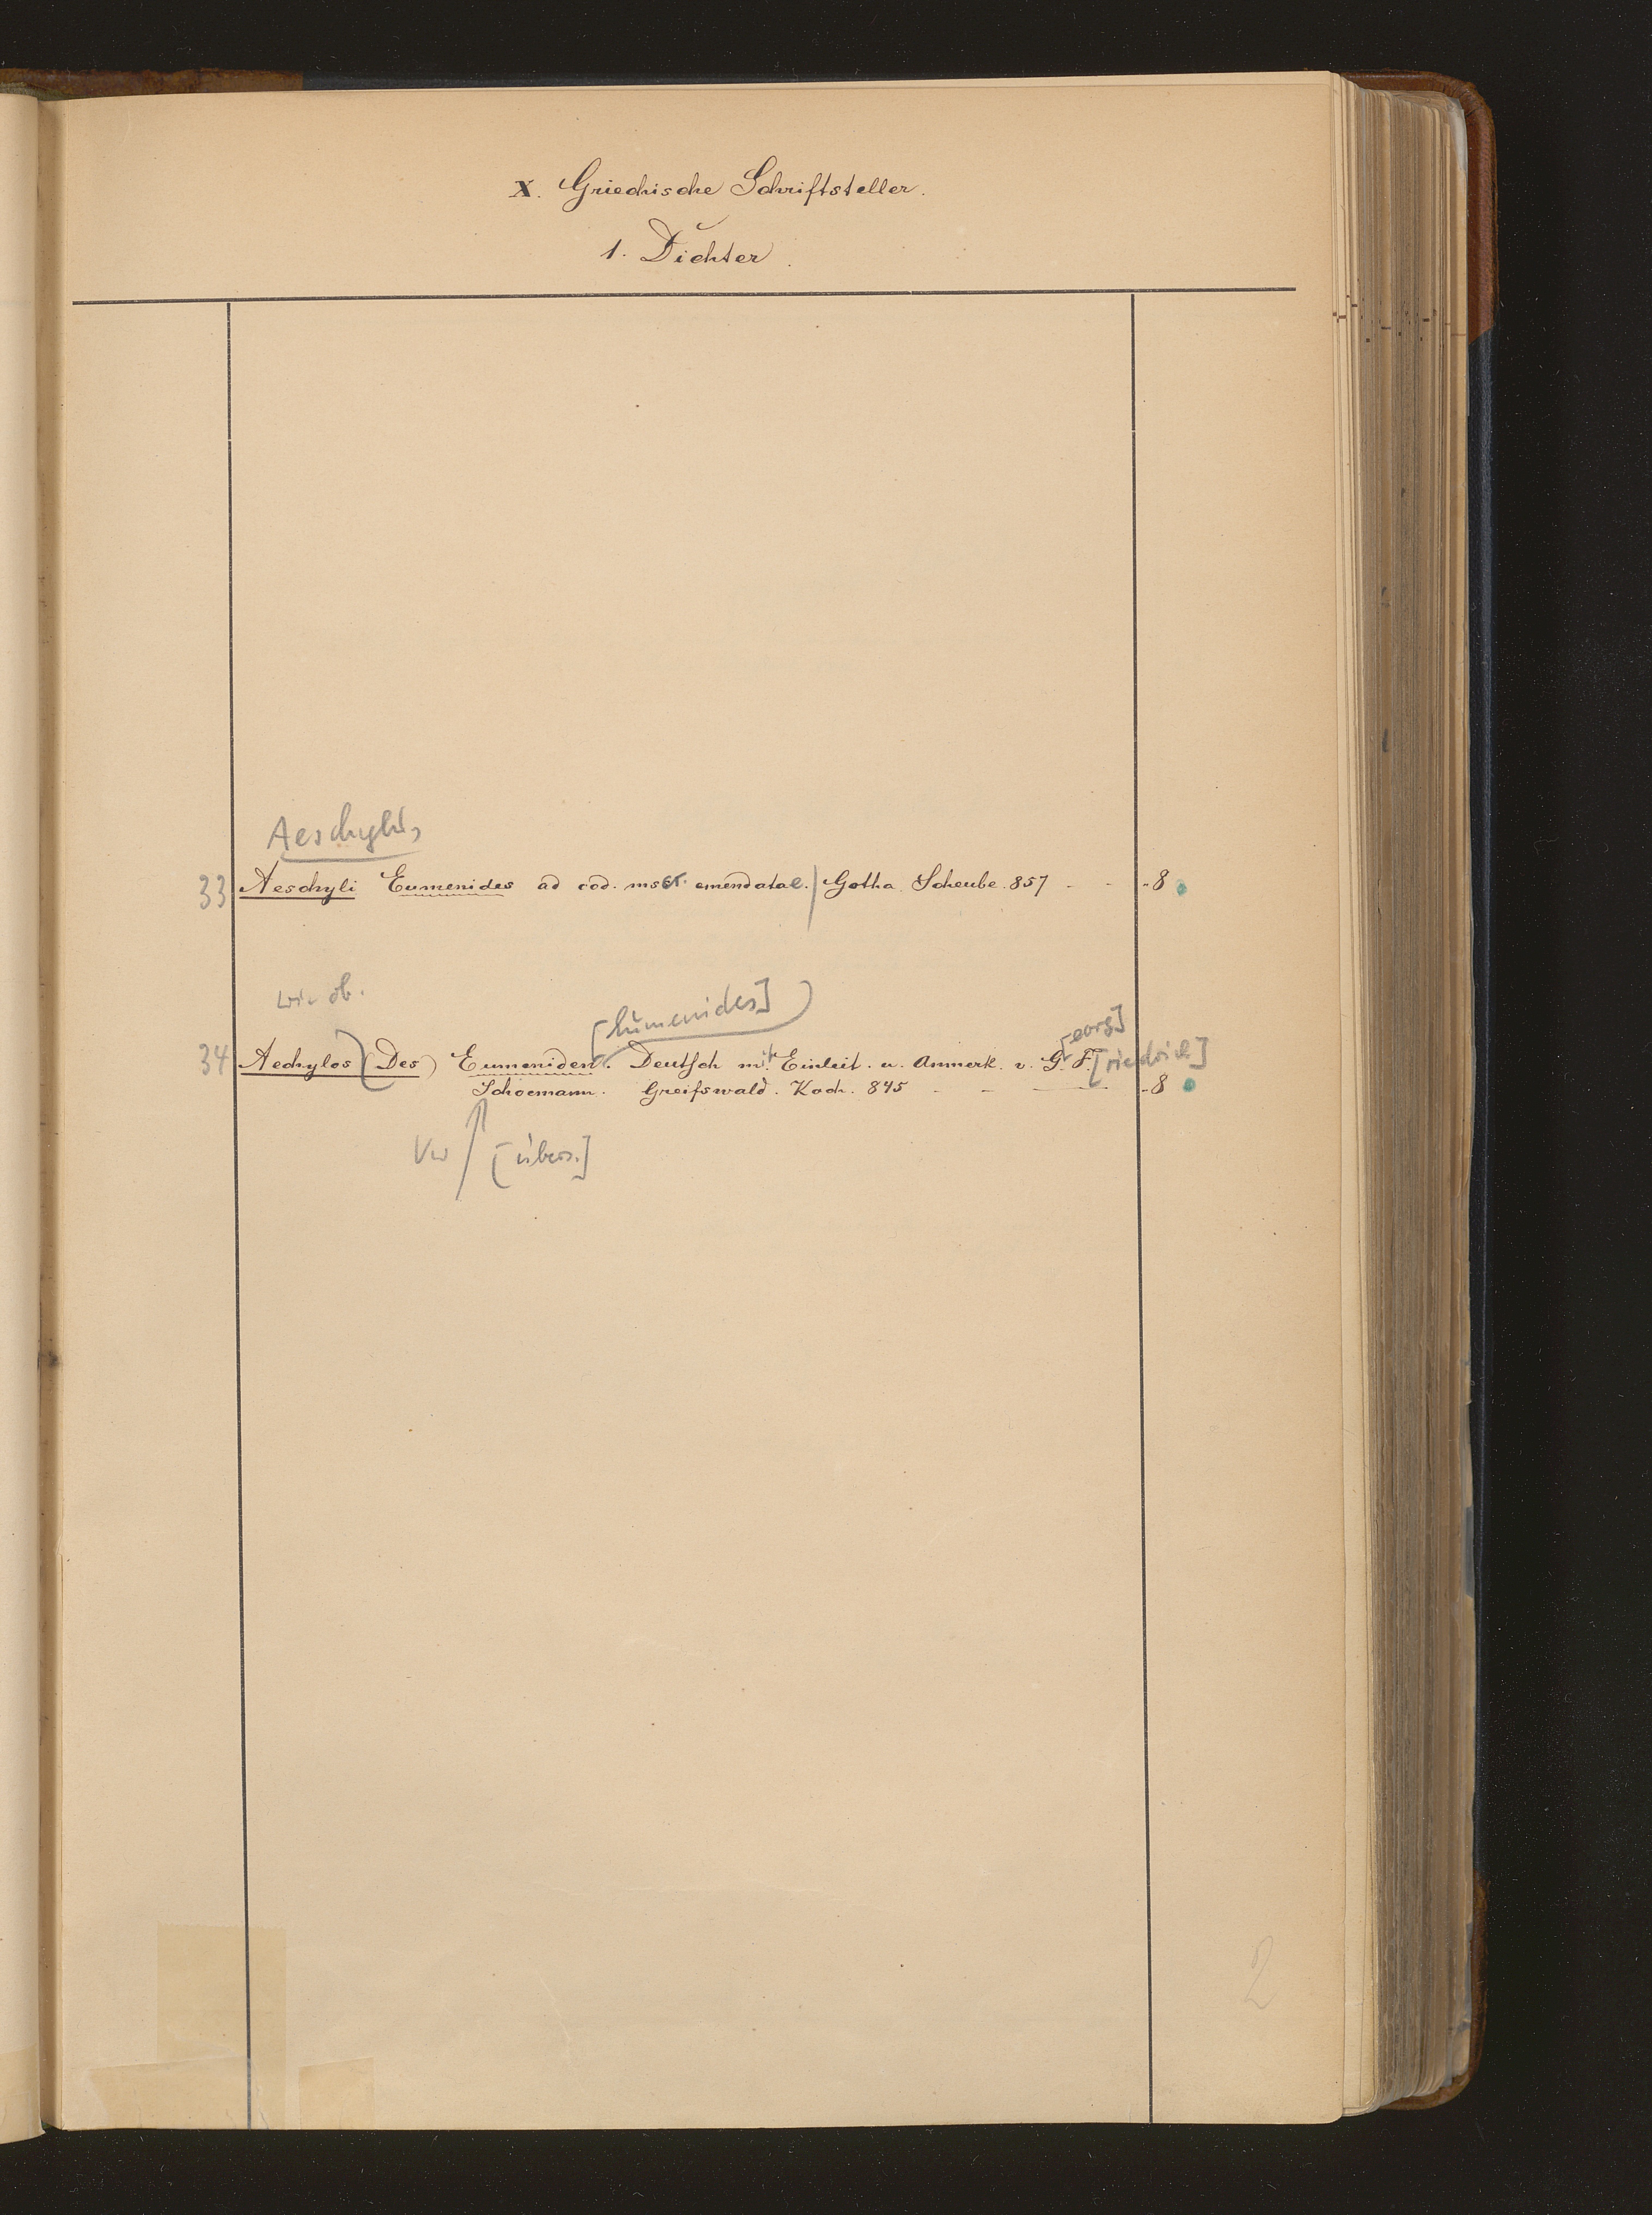 X. Griechische Schriftsteller.
1. Dichter.
Aeschylus
33 Aeschyli Eumenides ad cod. mscr. emendatae. / Gotha Scheube 857 - - - 8
wie ob. [Eumenides] [eorg]
34 Aechylos (Des) Eumeniden. Deutsch mit Einleit. u. Anmerk. v. G. F. [riedrich]
Schoemann. Greifswald. Koch. 845 - - - 8
Vw [übers.]
2